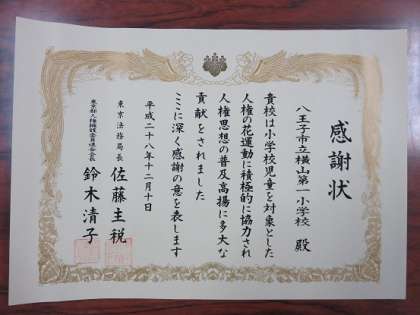 感謝状
八王子市立横山第一小学校 殿
貴校は小学校児童を対象とした
人権の花運動に積極的に協力され
人権思想の普及高揚に多大な
貢献をされました
ここに深く感謝の意を表します
平成二十八年十二月十日
東京法務局長 佐藤主税
東京都人権擁護委員連合会長 鈴木清子